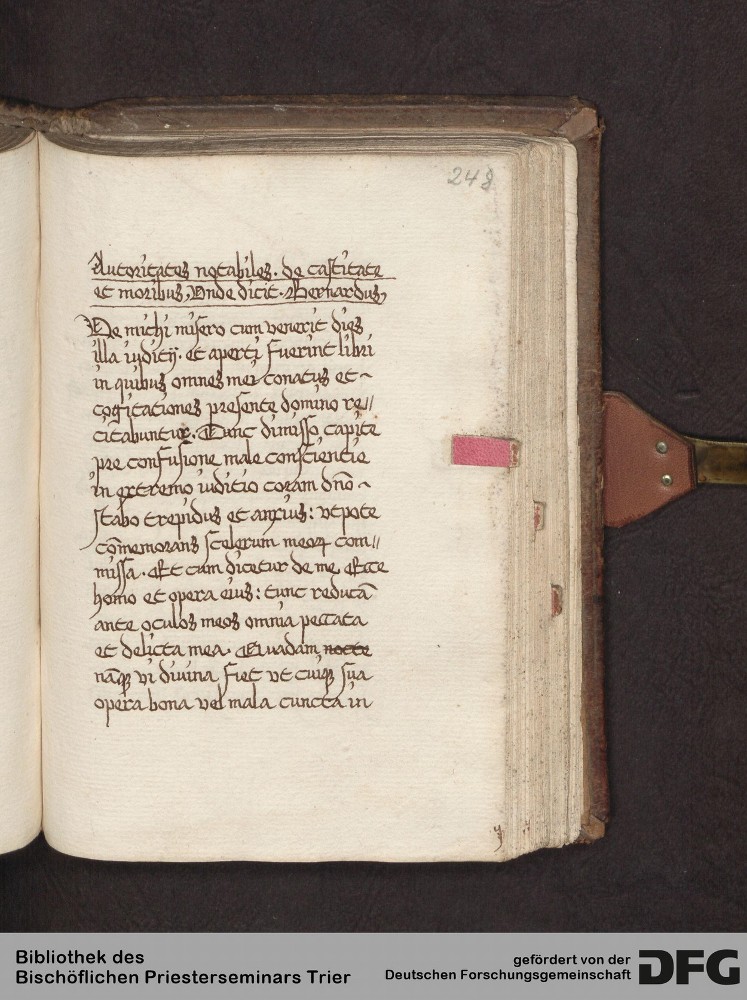 248
Autoritates notabiles. de castitate
et moribus, Vnde dicit. Bernardus,
Ve michi misero cum venerit dies
illa iuditij. et aperti fuerint libri
in quibus omnes mei conatus et ~
cogitationes presente domino re//
citabuntur. Tunc dimisso capite
pre confusione male conscientie
in extremo iuditio coram dn̄o ~
stabo trepidus et anxius: vtpote
cōmemorans scelerum meoꝝ com//
missa. Et cum dicetur de me, Ecce
homo et opera eius: tunc reducā
ante oculos meos omnia peccata
et delicta mea. Quadam nocte
nāqꝫ vi divina fiet vt cuiqꝫ sua
opera bona vel mala cuncta in
Bibliothek des
Bischöflichen Priesterseminars Trier
gefördert von der
Deutschen Forschungsgemeinschaft
DFG